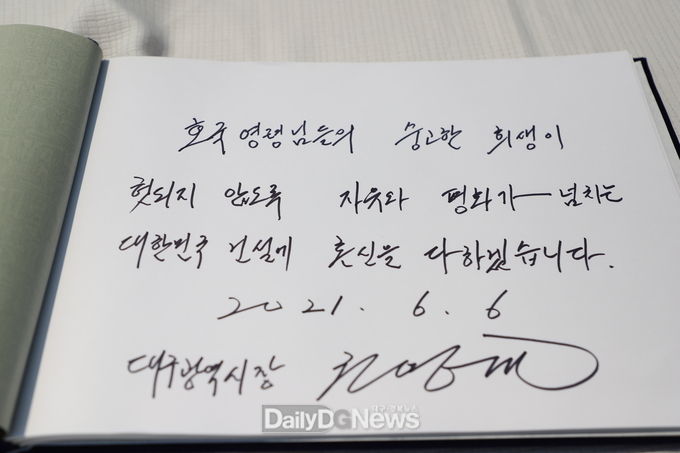 호국영령님들의 숭고한 희생이
헛되지 않도록 자유와 평화가 넘치는
대한민국 건설에 혼신을 다하겠습니다.
2021. 6. 6
대구광역시장 권영진
대구·경북뉴스
DailyDGNews